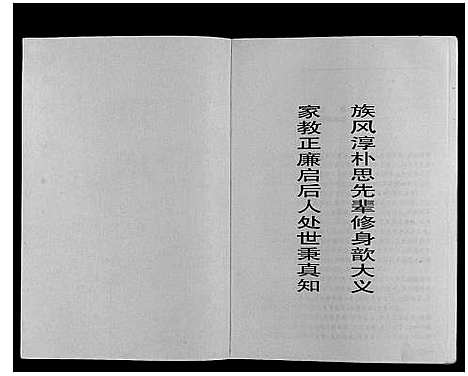 族风淳朴思先辈修身歆大义
家教正廉启后人处世秉真知